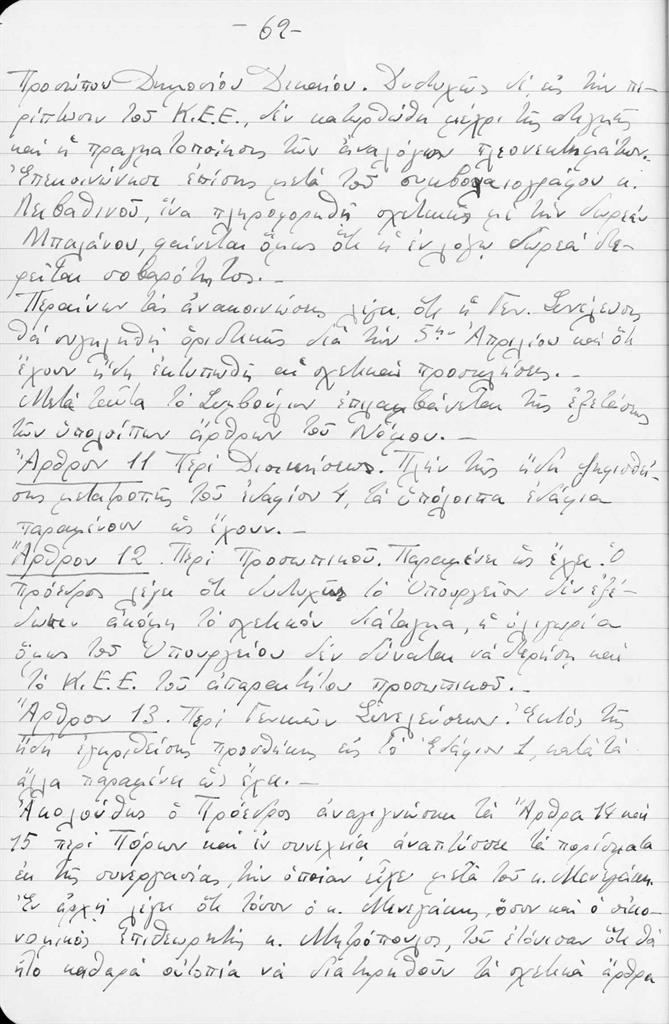 - 62 -
Προσώπου Δημοσίου Δικαίου. Δυστυχῶς δέ, εἰς τὴν πε-
ρίπτωσιν τοῦ Κ.Ε.Ε., δὲν κατωρθώθη μέχρι τῆς στιγμῆς
καὶ ἡ πραγματοποίησις τῶν ἀναλόγων πλεονεκτημάτων.
Ἐπεκοινώνησε ἐπίσης μετὰ τοῦ συμβολαιογράφου κ.
Λειβαθινοῦ, ἵνα πληροφορηθῇ σχετικῶς μὲ τὴν δωρεὰν
Μπαλάνου, φαίνεται ὅμως ὅτι ἡ ἐν λόγῳ δωρεὰ στε-
ρεῖται σοβαρότητος. -
Περαίνων τὰς ἀνακοινώσεις λέγει ὅτι ἡ Γεν. Συνέλευσις
θὰ συγκληθῇ ὁριστικῶς διὰ τὴν 5ην Ἀπριλίου καὶ ὅτι
ἔχουν ἤδη ἐκτυπωθῆ αἱ σχετικαὶ προσκλήσεις. -
Μετὰ ταῦτα τὸ Συμβούλιον ἐπιλαμβάνεται τῆς ἐξετάσεως
τῶν ὑπολοίπων ἄρθρων τοῦ Νόμου. -
Ἄρθρον 11 Περὶ Διοικήσεως. Πλὴν τῆς ἤδη ψηφισθεί-
σης μετατροπῆς τοῦ ἐδαφίου 4, τὰ ὑπόλοιπα ἐδάφια
παραμένουν ὡς ἔχουν. -
Ἄρθρον 12. Περὶ Προσωπικοῦ. Παραμένει ὡς ἔχει. Ὁ
πρόεδρος λέγει ὅτι δυστυχῶς τὸ Ὑπουργεῖον δὲν ἐξέ-
δωσεν ἀκόμη τὸ σχετικὸν διάταγμα, ἡ ὀλιγωρία
ὅμως τοῦ Ὑπουργείου δὲν δύναται νὰ στερήσῃ καὶ
τὸ Κ.Ε.Ε. τοῦ ἀπαραιτήτου προσωπικοῦ. -
Ἄρθρον 13. Περὶ Γενικῶν Συνελεύσεων. Ἐκτὸς τῆς
ἤδη ἐγκριθείσης προσθήκης εἰς τὸ Ἐδάφιον 1, κατὰ τὰ
ἄλλα παραμένει ὡς ἔχει. -
Ἀκολούθως ὁ Πρόεδρος ἀναγιγνώσκει τὰ Ἄρθρα 14 καὶ
15 περὶ Πόρων καὶ ἐν συνεχείᾳ ἀναπτύσσει τὰ πορίσματα
ἐκ τῆς συνεργασίας, τὴν ὁποίαν εἶχεν μετὰ τοῦ κ. Μενεγάκη.
Ἐν ἀρχῇ λέγει ὅτι τόσον ὁ κ. Μενεγάκης, ὅσον καὶ ὁ οἰκο-
νομικὸς Ἐπιθεωρητὴς κ. Μητρόπουλος, τοῦ ἐτόνισαν ὅτι θὰ
ἦτο καθαρὰ οὐτοπία νὰ διατηρηθοῦν τὰ σχετικὰ ἄρθρα